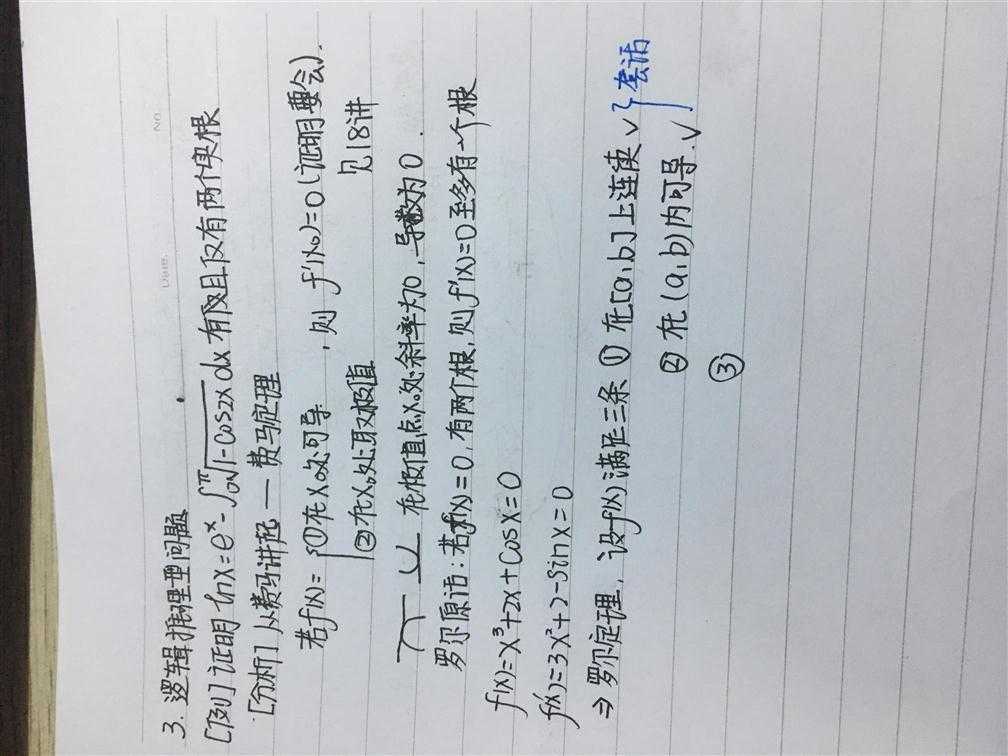 No.
Date.
3. 逻辑推理型问题
[例] 证明 lnx=e^x-∫₀^π√1-cos2x dx 有且仅有两个实根
[分析] 从费马讲起 — 费马定理
若f(x)= {①在x₀处可导 , 则 f'(x₀)=0 (证明要会).
②在x₀处取极值 见18讲
在极值点x₀处斜率为0, 导数为0.
罗尔原话: 若f(x)=0, 有两个根, 则f'(x)=0至多有一个根
f(x)=x³+2x+cosx=0
f'(x)=3x²+2-sinx=0
⇒ 罗尔定理, 设f(x)满足三条 ① 在[a,b]上连续 ✓ } 套话
② 在(a,b)内可导. ✓
③